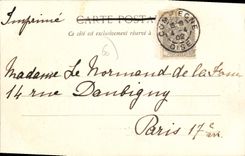 CARTE POSTALE
Imprimé
Ce côté est exclusivement réservé à
COMPIEGNE
OISE
Madame Le Normand de la
14 rue Daubigny
Paris 17e
arr.